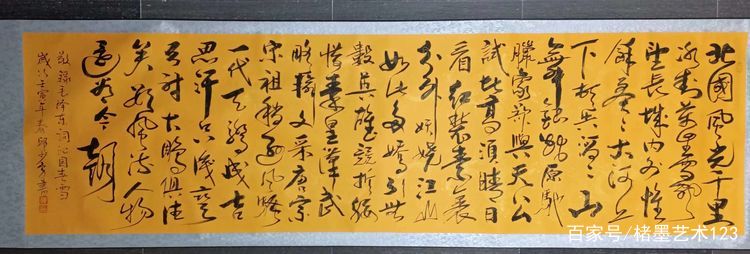 北國風光千里
冰封萬里雪飄
望長城内外惟
餘莽〻大河上
下頓失滔〻山
舞銀蛇原馳
臘象欲與天公
試比高須晴日
看紅裝素裹
分外妖嬈江山
如此多嬌引無
數英雄競折腰
惜秦皇漢武
略輸文采唐宗
宋祖稍遜風騷
一代天驕成吉
思汗只識彎
弓射大鵰俱往
矣數風流人物
還看今朝
敬録毛澤東詞沁園春雪
歲次壬寅年春
百家号/楮墨艺术123